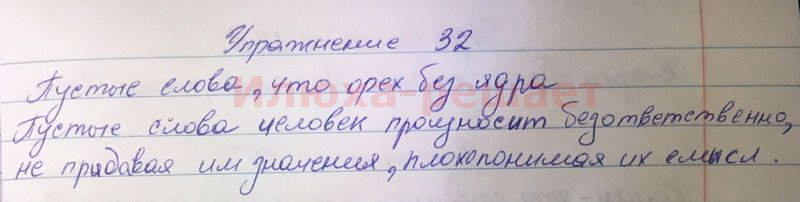 Упражнение 32
Пустые слова, что орех без ядра
Илюха-решает
Пустые слова человек произносит безответственно,
не придавая им значения, плохопонимая их смысл.